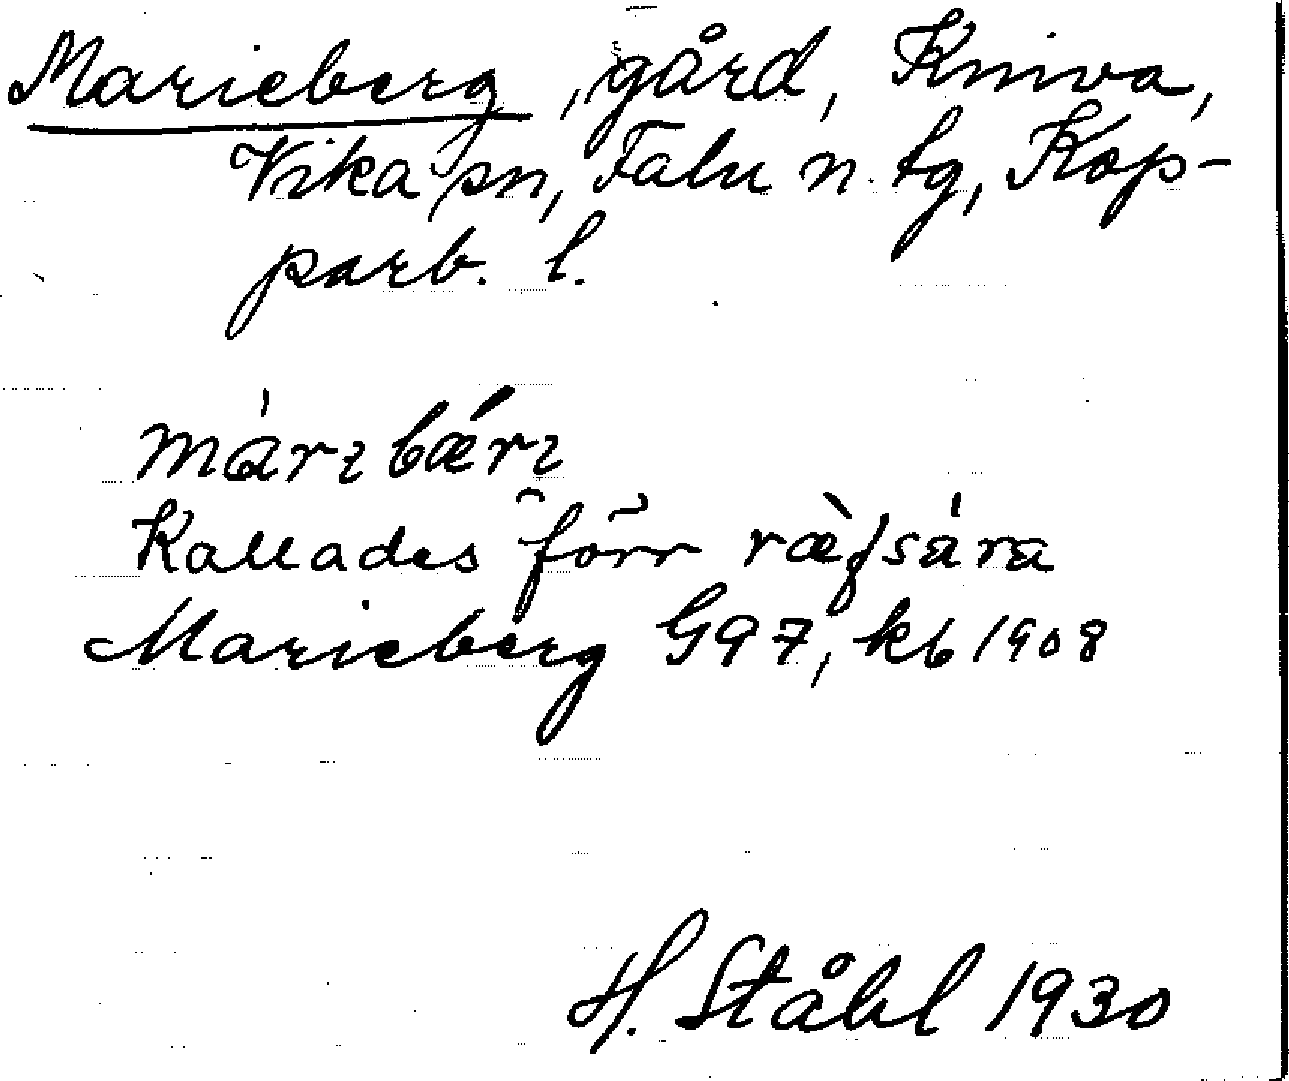 Marieberg, gård, Kniva,
Vika sn, Falu n. tg, Kop-
parb. l.
Kallades förr
Marieberg G97, kb 1908
H. Ståhl 1930